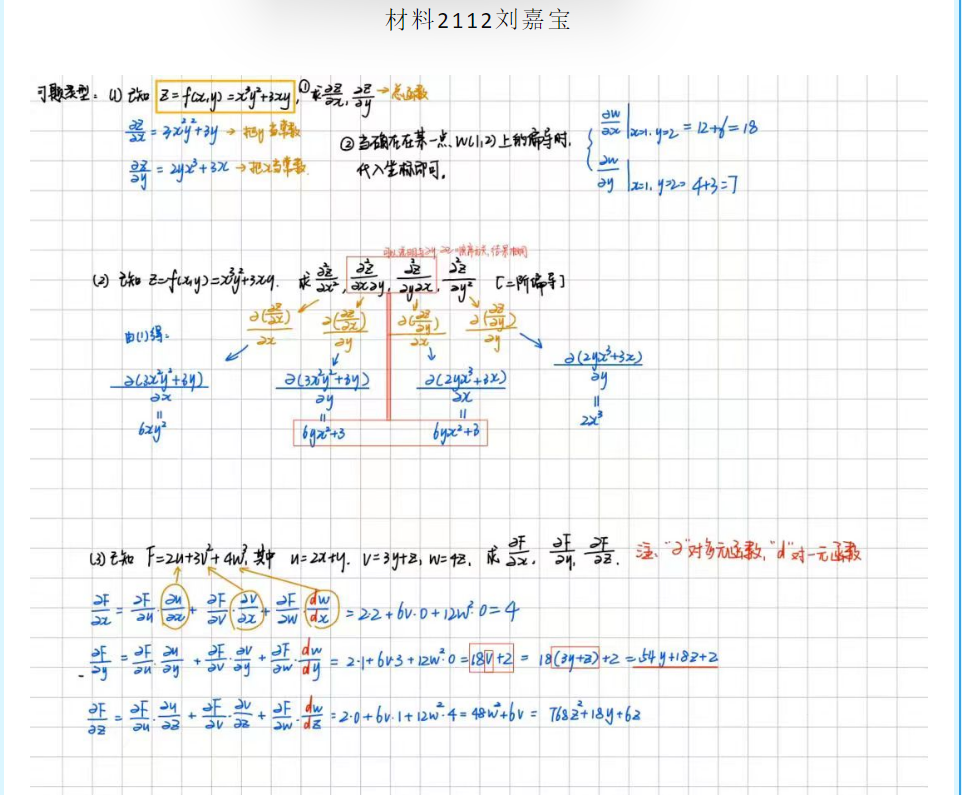 材料2112刘嘉宝
习题类型: (1) 已知 z=f(x,y)=x³y²+3xy, ① 求∂z/∂x, ∂z/∂y → 总函数
∂z/∂x = 3x²y²+3y → 把y当常数
∂z/∂y = 2yx³+3x → 把x当常数
② 当确在在某一点W(1,2)上的偏导时,
代入坐标即可。
∂w/∂x |x=1, y=2 = 12+6=18
∂w/∂y |x=1, y=2= 4+3=7
结果相同
(2) 已知 z=f(x,y)=x³y²+3xy. 求 ∂²z/∂x², ∂²z/∂x∂y, ∂²z/∂y∂x, ∂²z/∂y² [二阶偏导]
∂(∂z/∂x)/∂x ∂(∂z/∂x)/∂y ∂(∂z/∂y)/∂x ∂(∂z/∂y)/∂y
由(1)得:
∂(3x²y²+3y)/∂x ∂(3x²y²+3y)/∂y ∂(2yx³+3x)/∂x ∂(2yx³+3x)/∂y
= = = =
6xy² 6yx²+3 6yx²+3 2x³
(3) 已知 F=2u+3v²+4w³, 其中 u=2x+y. v=3y+z, w=4z, 求 ∂F/∂x, ∂F/∂y, ∂F/∂z. 注: "∂"对多元函数, "d"对一元函数
∂F/∂x = ∂F/∂u·∂u/∂x + ∂F/∂v·∂v/∂x + ∂F/∂w·dw/dx = 2·2+6v·0+12w²·0=4
∂F/∂y = ∂F/∂u·∂u/∂y + ∂F/∂v·∂v/∂y + ∂F/∂w·dw/dy = 2·1+6v·3+12w²·0=18v+2 = 18(3y+z)+2 =54y+18z+2
∂F/∂z = ∂F/∂u·∂u/∂z + ∂F/∂v·∂v/∂z + ∂F/∂w·dw/dz = 2·0+6v·1+12w²·4=48w²+6v = 768z²+18y+6z